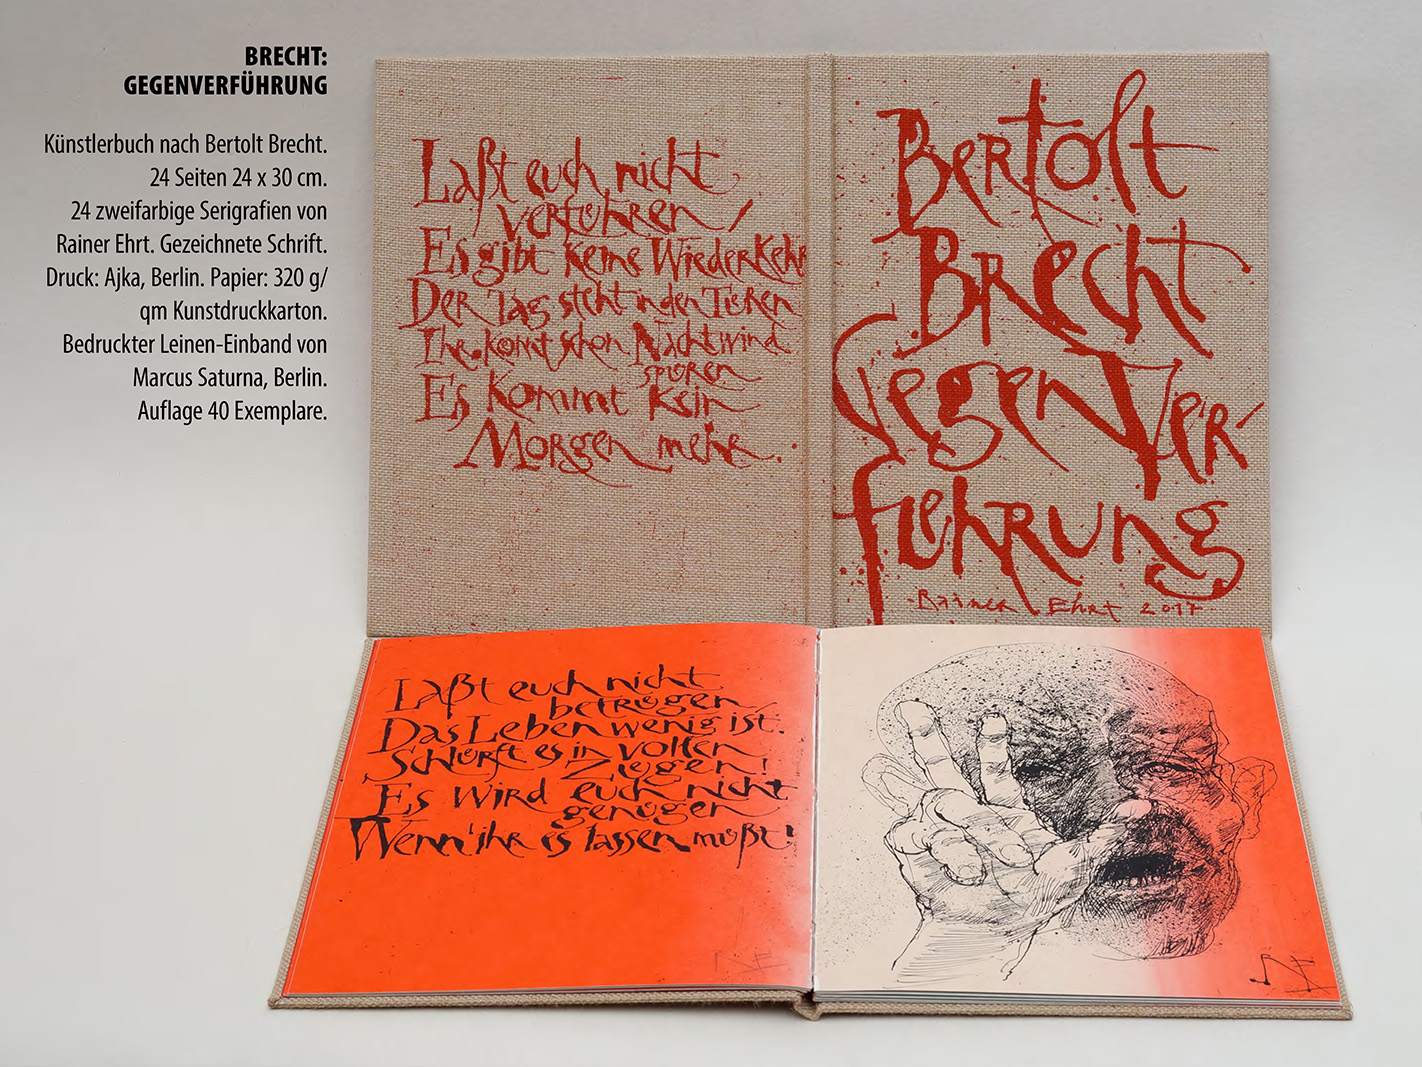 BRECHT:
GEGENVERFÜHRUNG
Künstlerbuch nach Bertolt Brecht.
24 Seiten 24 x 30 cm.
24 zweifarbige Serigrafien von
Rainer Ehrt. Gezeichnete Schrift.
Druck: Ajka, Berlin. Papier: 320 g/
qm Kunstdruckkarton.
Bedruckter Leinen-Einband von
Marcus Saturna, Berlin.
Auflage 40 Exemplare.
Laßt euch nicht
verführen!
Es gibt keine Wiederkehr
Der Tag steht in den Türen
Ihr könnt schon Nachtwind
spüren
Es kommt kein
Morgen mehr.
Bertolt
Brecht
Gegen Ver
fuehrung
Rainer Ehrt 2017
Laßt euch nicht
betrügen!
Das Leben wenig ist.
Schlürft es in vollen
Zügen!
Es wird euch nicht
genügen
Wenn ihr es lassen müßt!
RE
RE